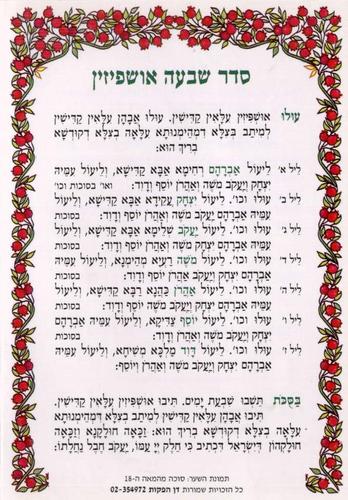 סדר שבעה אושפיזין
עולו אושפיזין עלאין קדישין. עולו אבהן עלאין קדישין
למיתב בצלא דמהימנותא עלאה בצלא דקודשא
בריך הוא:
ליל א' ליעול אברהם רחימא אבא קדישא, וליעול עמיה
יצחק ויעקב משה ואהרן יוסף ודוד: ואו' בסוכות וכו'
ליל ב' עולו וכו'. ליעול יצחק עקידא אבא קדישא, וליעול
עמיה אברהם ויעקב משה ואהרן יוסף ודוד: בסוכות
ליל ג' עולו וכו'. ליעול יעקב שלימא אבא קדישא, וליעול
עמיה אברהם יצחק משה ואהרן יוסף ודוד: בסוכות
ליל ד' עולו וכו'. ליעול משה רעיא מהימנא, וליעול עמיה
אברהם יצחק ויעקב אהרן יוסף ודוד: בסוכות
ליל ה' עולו וכו'. ליעול אהרן כהנא רבא קדישא, וליעול
עמיה אברהם יצחק ויעקב משה יוסף ודוד: בסוכות
ליל ו' עולו וכו'. ליעול יוסף צדיקא, וליעול עמיה אברהם
יצחק ויעקב משה ואהרן ודוד: בסוכות
ליל ז' עולו וכו'. ליעול דוד מלכא משיחא, וליעול עמיה
אברהם יצחק ויעקב משה ואהרן ויוסף:
בסכת תשבו שבעת ימים. תיבו אושפיזין עלאין קדישין.
תיבו אבהן עלאין קדישין למיתב בצלא דמהימנותא
עלאה בצלא דקודשא בריך הוא: זכאה חולקנא וזכאה
חולקהון דישראל דכתיב כי חלק יי עמו, יעקב חבל נחלתו:
תמונת השער: סוכה מהמאה ה-18
כל הזכויות שמורות דן הפקות 02-354972